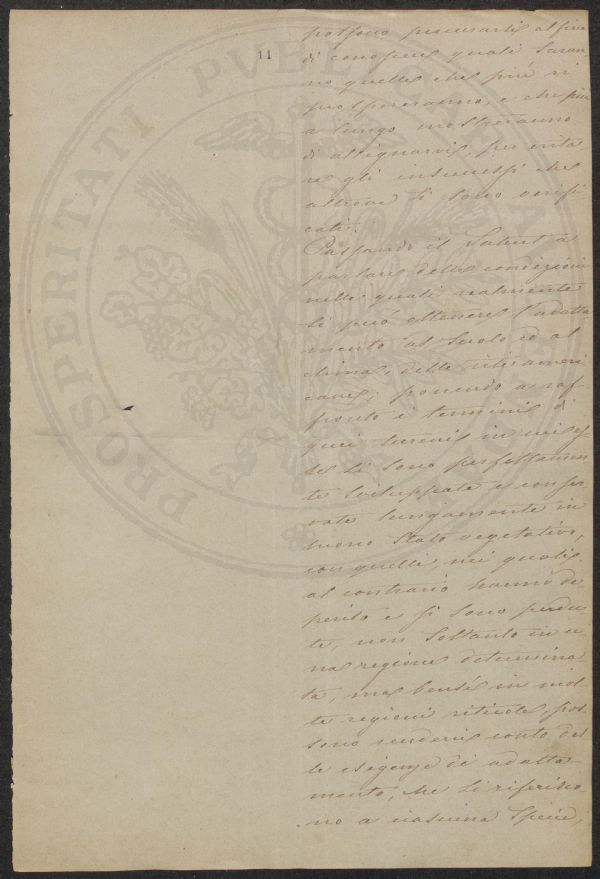 11
possono procurarsi al fine
di conoscere quali saran
no quelle che più vi
prospereranno, e che più
a lungo mostreranno
di allignarvi, per evita
re gli insuccessi che
altrove si sono verifi
cati.
Passando il Sahut a
parlare delle condizioni
nelle quali realmente
si può ottenere l'adatta
mento al suolo ed al
clima, delle viti ameri
cane, ponendo a raf
fronto i termini di
quei terreni in cui es
se si sono perfettamen
te sviluppate e conser
vate lungamente in
buono stato vegetativo,
con quelli, nei quali
al contrario hanno de-
perito e si sono perdu-
te, non soltanto in u
na regione determina-
ta, ma bensì in mol-
te regioni viticole, pos
sono rendersi conto del
le esigenze di adatta-
mento, che si riferisco
no a ciascuna specie,
PROSPERITATI PUBLICAE